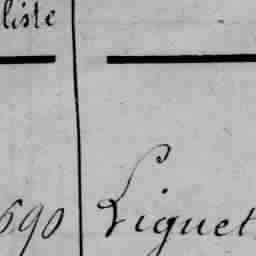 liste
690 Liguet